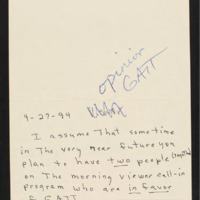 opinion
GATT
9-27-94
I assume that sometime
in the very near future you
plan to have two people (together)
on the morning viewer call-in
program who are in favor
of GATT